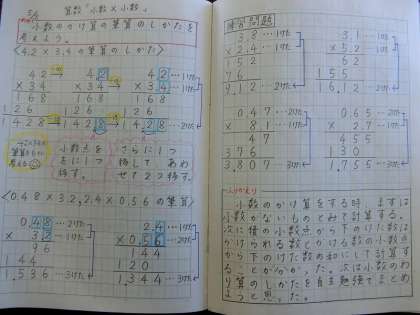 5/6
算数「小数×小数」
小数のかけ算の筆算のしかたを
考えよう。
<4.2×3.4の筆算のしかた>
42 → 4.2 4.2…1けた
×34 ×34 ×3.4…1けた
168 168 168
126 126 126
1428 142.8 14.28…2けた
小数点を
左に1つ
移す。
さらに1つ
移して、あわ
せて2つ移す。
<0.48×3.2、2.4×0.56の筆算>
0.48…2けた
×3.2…1けた
96
144
1.536…3けた
2.4…1けた
×0.56…2けた
144
120
1.344…3けた
練習問題
3.8…1けた
×2.4…1けた
152
76
9.12…2けた
3.1…1けた
×5.2…1けた
62
155
16.12…2けた
0.47…2けた
×8.1…1けた
47
376
3.807…3けた
0.65…2けた
×2.7…1けた
455
130
1.755…3けた
<ふりかえり>
小数のかけ算をする時、まずは
小数がないものとみて計算する。
次に積の小数点から下のけた数は
かけられる数とかける数の小数点
から下のけた数の和にして計算す
ることが分かった。次は小数のわ
り算のしかたを自主勉強でまとめ
ようと思った。